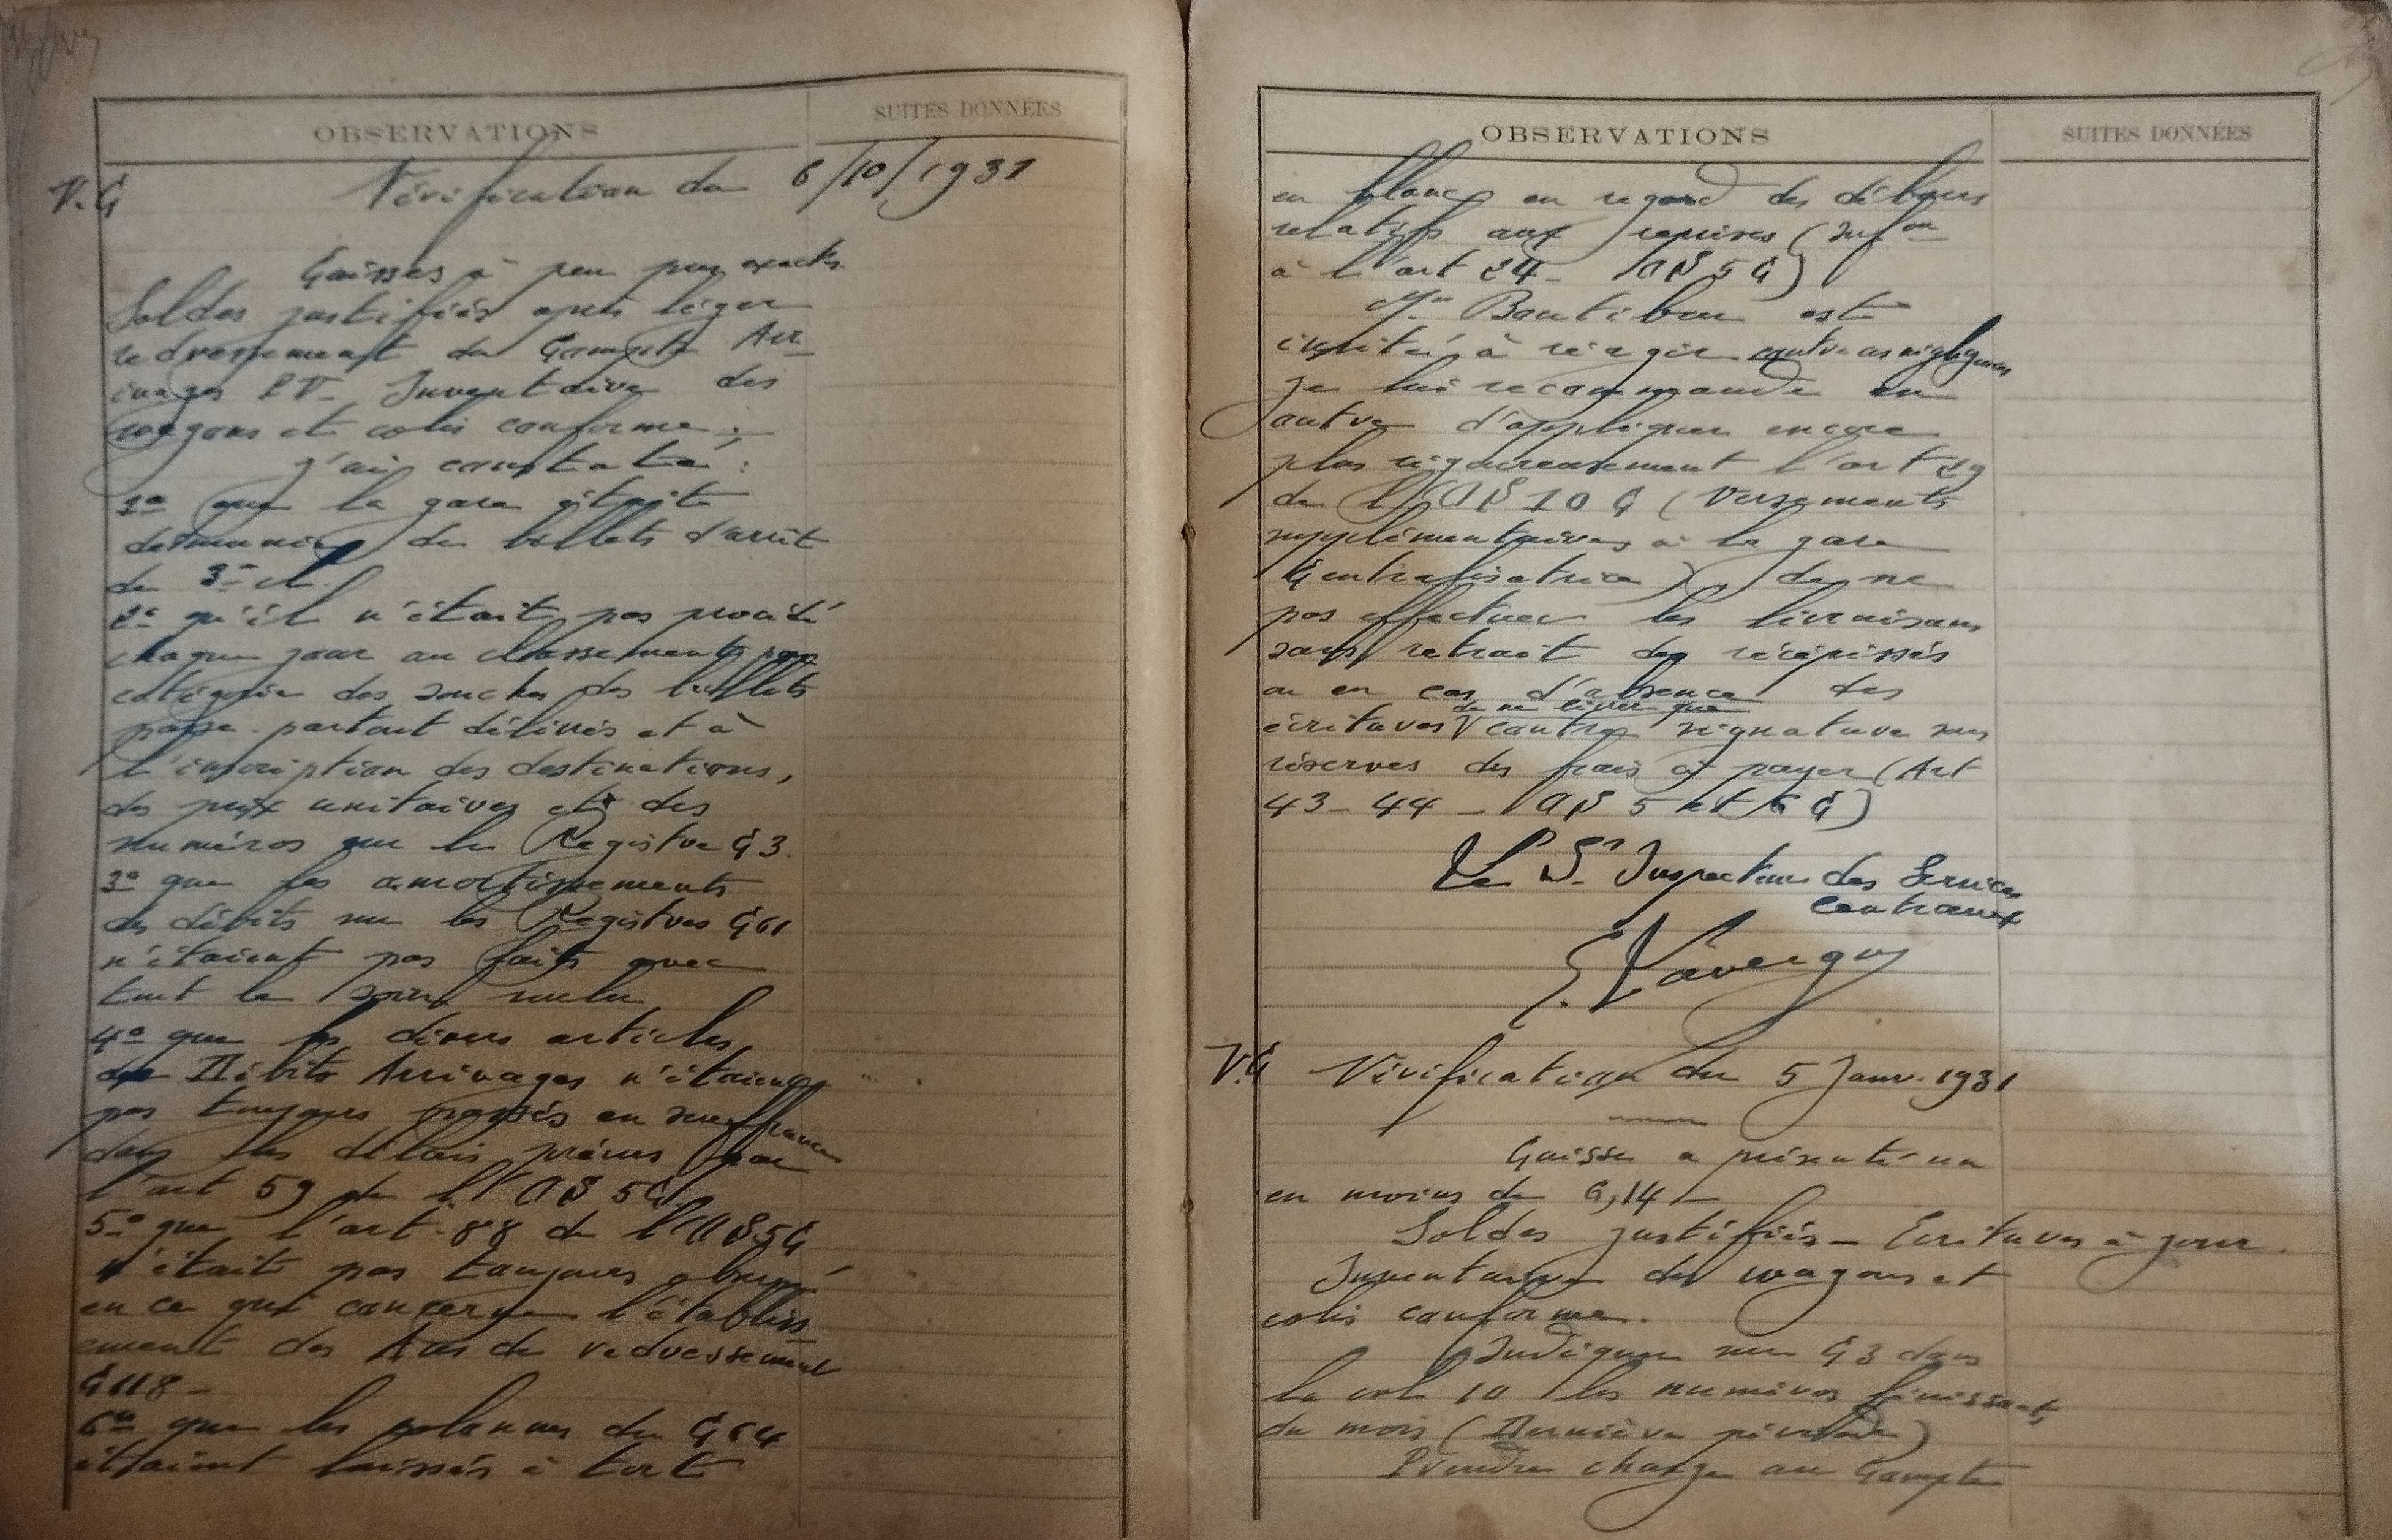 OBSERVATIONS
SUITES DONNÉES
V.G
Vérification du 6/10/1931
Caisses à peu près exactes
Soldes justifiés après léger
redressement du Compte Arr-
ivages PV- Inventaire des
wagons et colis conforme ;-
j'ai constaté :
1º que la gare était
démunie de billets d'arrêt
de 3e cl.
2º qu'il n'était pas procédé
chaque jour au classement par
catégorie des souches des billets
passe-partout délivrés et à
l'inscription des destinations,
des prix unitaires et des
numéros sur le Registre G3.
3º que les amortissements
des débits sur les Registres G61
n'étaient pas faits avec
tout le soin voulu
4º que les divers articles
des Débits Arrivages n'étaient
pas toujours passés en souffrances
dans les délais prévus par
l'art 59 de l'OS 5G
5º que l'art. 88 de l'OS.5G
n'était pas toujours observé
en ce qui concerne l'établiss-
ement des de redressement
G118-
6º que les colonnes du G64
étaient laissées à tort
OBSERVATIONS
SUITES DONNÉES
en blanc en regard des débours
relatifs aux reprises
à l'art 24- OS 5G)
Mr est
invité à réagir contre ces négligences
Je lui recommande en
outre d'appliquer encore
plus rigoureusement l'art 29
de l'OS 10 G (Versements
supplémentaires à la gare
Centralisatrice), de ne
pas effectuer les livraisons
sans retrait des récépissés
ou en cas d'absence des
de ne livrer que
écritures V contre signature sous
réserves des frais à payer (Art
43-44 - OS 5 et 6 G)
Le S. Inspecteur des Services
Centraux
Lavergne
V.G Vérification du 5 Janv. 1931
Caisse a présenté un
en moins de 0,14
Soldes justifiés - Ecritures à jour.
Inventaire des wagons et
colis conforme.
Indiquer sur G3 dans
la col 10 les numéros finissants
du mois (Dernière période)
Prendre charge au Compte